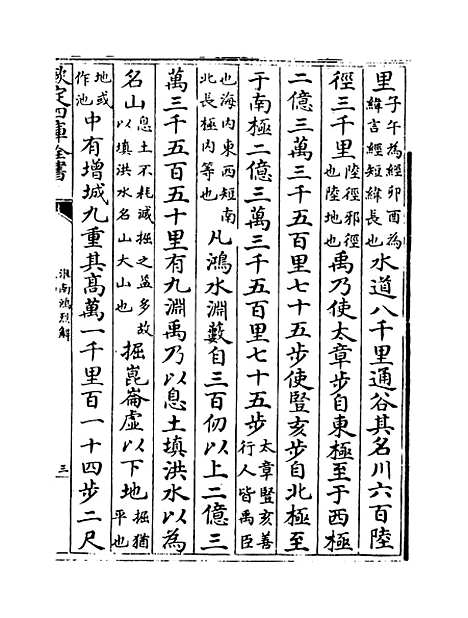 里子午為經卯酉為緯言經短緯長也水道八千里通谷其名川六百陸
徑三千里陸徑邪徑也陸地也禹乃使太章步自東極至于西極
二億三萬三千五百里七十五步使豎亥步自北極至
于南極二億三萬三千五百里七十五步太章豎亥善行人皆禹臣
也海内東西短南北長極内等也凡鴻水淵藪自三百仞以上二億三
萬三千五百五十里有九淵禹乃以息土填洪水以為
名山息土不耗減掘之益多故以填洪水名山大山也掘崑崙虛以下地掘猶平也
地或作池中有增城九重其髙萬一千里百一十四步二尺
欽定四庫全書
淮南鴻烈解
三